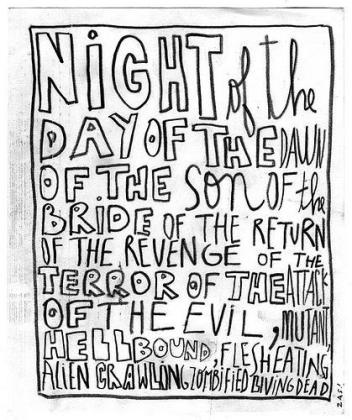 NiGHT of the
DAY OF THE DAWN
OF THE SON OF the
BRIDE OF THE RETURN
OF THE REVENGE OF THE
TERROR OF THE ATTACK
OF THE EVIL, MUTANT,
HELLBOUND, FLESHEATING
ALiEN CRAWLING ZOMBIFIED LIVING DEAD